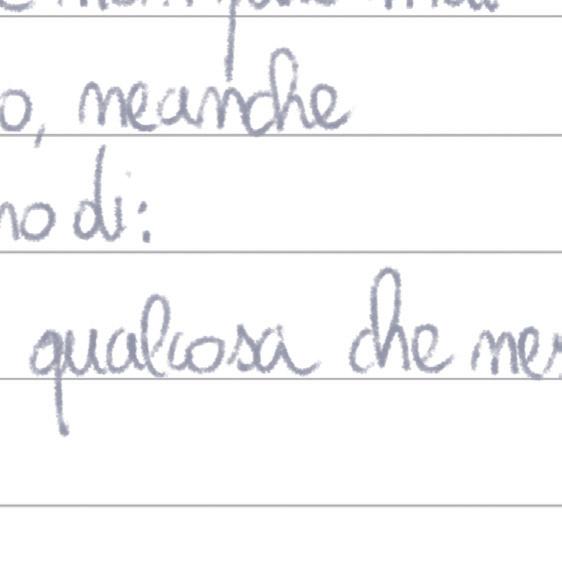 o, neanche
no di:
qualcosa che nes